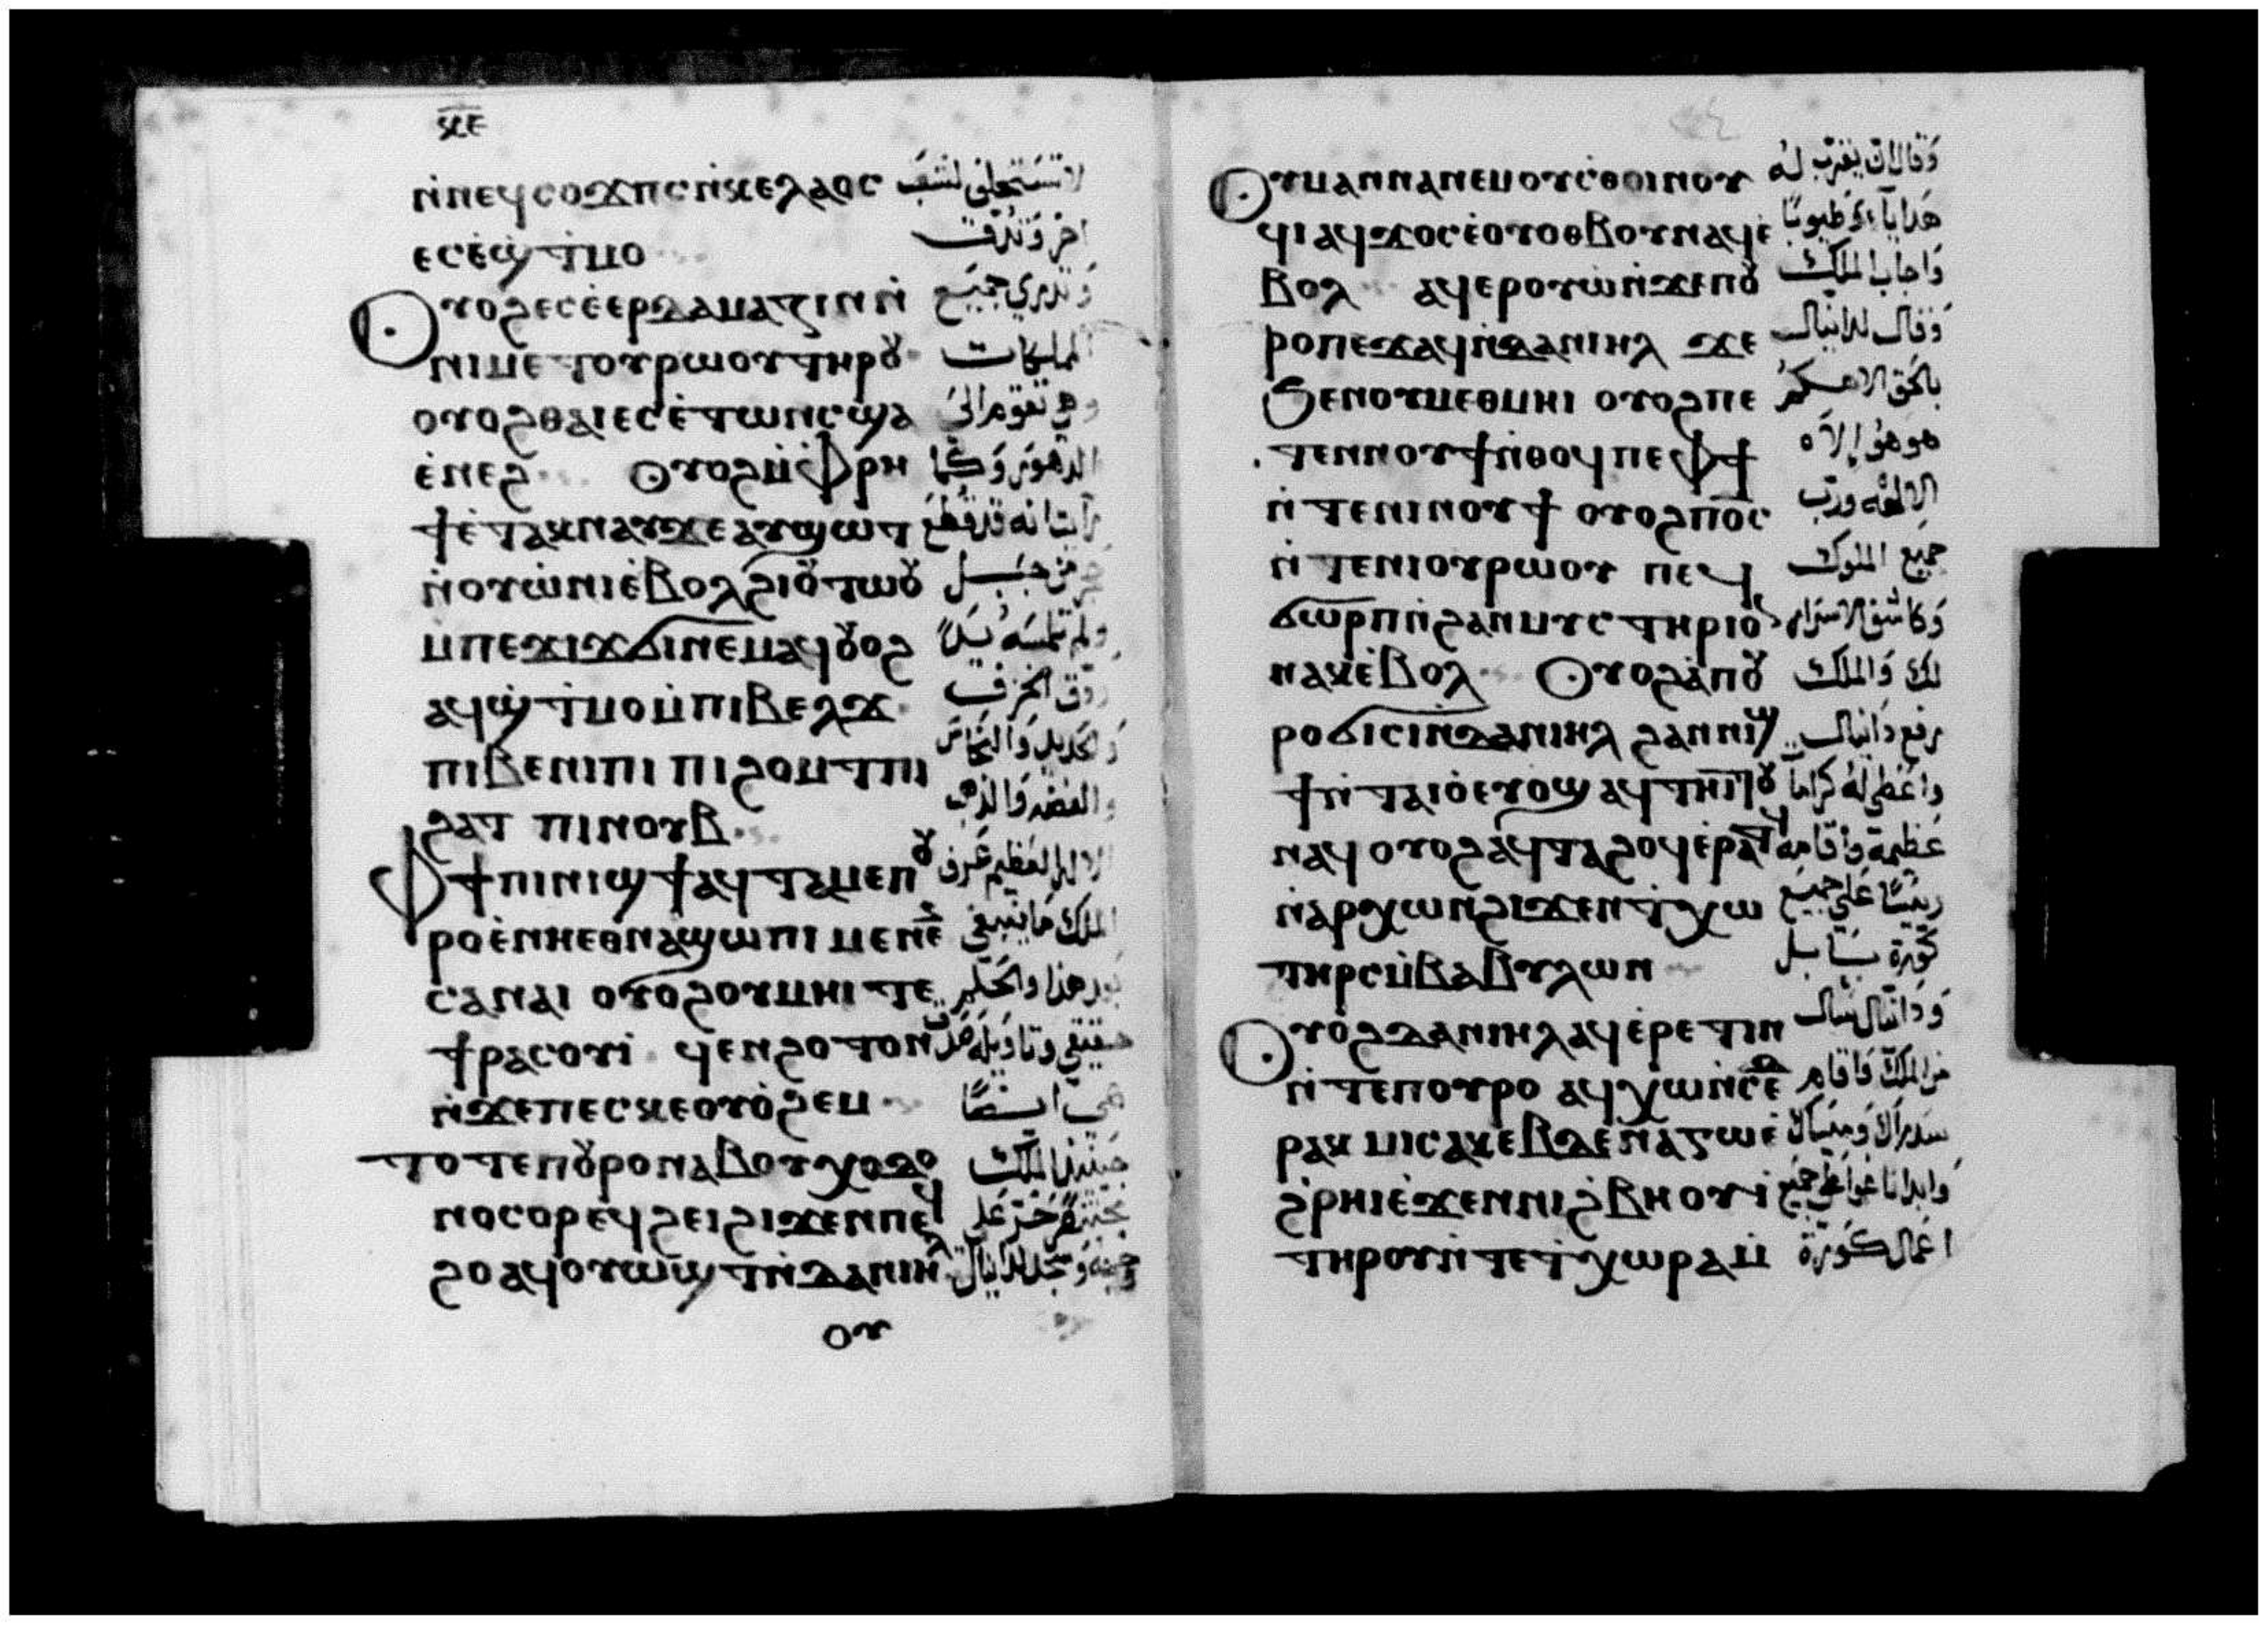 ⲝⲉ
ⲛ̀ⲛⲉϥⲥⲟϫⲡⲥ ⲛ̀ⲕⲉⲗⲁⲟⲥ
ⲉⲥⲉ̀ϣⲧ̀ⲙⲟ
ⲟⲩⲟϩ ⲉⲥⲉ̀ⲉⲣⲇⲁⲙⲁⲍⲓⲛ ⲛ̀
ⲛⲓⲙⲉⲧⲟⲩⲣⲱⲟⲩ ⲧⲏⲣⲟⲩ
ⲟⲩⲟϩ ⲑⲁⲓ ⲉⲥⲉ̀ⲧⲱⲛⲥ ϣⲁ
ⲉ̀ⲛⲉϩ ⲟⲩⲟϩ ⲙ̀ⲫⲣⲏ
ϯ ⲉ̀ⲧⲁⲕⲛⲁⲩ ϫⲉ ⲁⲩϣⲱⲧ
ⲛ̀ⲟⲩⲱ̀ⲛⲓ ⲉ̀ⲃⲟⲗϩⲓⲟⲩⲧⲱⲟⲩ
ⲙⲡⲉϫⲓϫ ϭⲓ ⲛⲉⲙⲁϥ ⲟⲩⲟϩ
ⲁϥϣⲧ̀ⲙⲟ ⲙ̀ⲡⲓⲃⲉⲗϫ
ⲡⲓⲃⲉⲛⲓⲡⲓ ⲡⲓϩⲟⲙⲧ ⲡⲓ
ϩⲁⲧ ⲡⲓⲛⲟⲩⲃ
ⲫϯ ⲡⲓⲛⲓϣϯ ⲁϥⲧⲁⲙⲉⲡⲟⲩ
ⲣⲟ ⲉ̀ⲛⲏⲉⲑⲛⲁϣⲱⲡⲓ ⲙⲉⲛⲉ
ⲥⲁⲛⲁⲓ ⲟⲩⲟϩ ⲟⲩⲙⲏⲓ ⲧⲉ
ϯⲣⲁⲥⲟⲩⲓ̀ ϥⲉⲛϩⲟⲧ ⲟⲛ
ⲛ̀ϫⲉⲡⲉⲥⲕⲉⲟⲩⲟ̀ϩⲉⲙ
ⲧⲟⲧⲉ ⲡⲟⲩⲣⲟ ⲛⲁⲃⲟⲩⲭⲟⲇⲟ
ⲛⲟⲥⲟⲣ ⲉ̀ϥϩⲉⲓ ϩⲓϫⲉⲛ ⲡⲉϥ
ϩⲟ ⲁϥⲟⲩⲱϣⲧ ⲛ̀ⲇⲁⲛⲓⲏⲗ
ⲟⲩ
لا تستبقى لشعب
اخر وَتدقت
وَتدري جميع
الملكات
وهي تقوم الى
الدهور وكما
رأيت انه قد قطع
حجر من جبل
ولم تمسه يداً
ودق الخزف
والحديد والنحاس
والفضه والذهب
الاله العظيم عرف
الملك ما ينبغي
بعد هذا والحلم
حقيقي وتاويله صدق
هي ايضًا
حينئذ الملك
بختنصر خر على
وجهه وسجد لدانيال
ⲟⲩⲙⲁⲛⲛⲁ ⲛⲉⲙ ⲟⲩⲥ̀ⲑⲟⲓⲛⲟⲩ
ϥⲓ ⲁϥϫⲟⲥ ⲉ̀ⲟⲩⲟⲑⲃⲟⲩ ⲛⲁϥ ⲉ̀
ⲃⲟⲗ ⲁϥⲉⲣⲟⲩⲱ̀ ⲛ̀ϫⲉⲡⲟⲩ
ⲣⲟ ⲡⲉϫⲁϥ ⲛ̀ⲇⲁⲛⲓⲏⲗ ϫⲉ
ϧⲉⲛⲟⲩⲙⲉⲑⲙⲏⲓ ⲟⲩⲟϩ ⲡⲉ
ⲧⲉⲛⲛⲟⲩϯ ⲛ̀ⲑⲟϥ ⲡⲉ ⲫϯ
ⲛ̀ⲧⲉⲛⲓⲛⲟⲩϯ ⲟⲩⲟϩ ⲡⲟ̅ⲥ̅
ⲛ̀ⲧⲉⲛⲓⲟⲩⲣⲱⲟⲩ ⲡⲉϥ
ϭⲱⲣⲡ ⲛ̀ϩⲁⲛⲙⲩⲥⲧⲏⲣⲓⲟⲛ
ⲛⲁⲕ ⲉ̀ⲃⲟⲗ ⲟⲩⲟϩ ⲁ̀ⲡⲟⲩ
ⲣⲟ ϭⲓⲥⲓ ⲛ̀ⲇⲁⲛⲓⲏⲗ ϩⲁⲛⲛⲓϣ
ϯ ⲛ̀ⲧⲁⲓⲟ̀ ⲉⲩⲟϣ ⲁϥⲧⲏⲓⲧⲟⲩ
ⲛⲁϥ ⲟⲩⲟϩ ⲁϥⲧⲁϩⲟϥ ⲉ̀ⲣⲁⲧϥ
ⲛ̀ⲁⲣⲭⲱⲛ ϩⲓϫⲉⲛ ϯⲭⲱ
ⲧⲏⲣⲥ ⲙ̀ⲃⲁⲃⲩⲗⲱⲛ
ⲟⲩⲟ̀ϩ ⲇⲁⲛⲓⲏⲗ ⲁϥⲉ̀ⲣⲉⲧⲓⲛ
ⲛ̀ⲧⲉⲡⲟⲩⲣⲟ ⲁϥⲭⲱ ⲛ̀ⲥⲉⲇ
ⲣⲁⲕ ⲙⲓⲥⲁⲕ ⲉⲃⲇⲉⲛⲁⲅⲱ ⲉ̀
ϩ̀ⲣⲏⲓ ⲉ̀ϫⲉⲛ ⲛⲓϩ̀ⲃⲏⲟⲩⲓ̀
ⲧⲏⲣⲟⲩ ⲛ̀ⲧⲉϯⲭⲱⲣⲁ ⲙ̀
وَقال ان يقرب له
هَدايا وطيوبًا
وَاجاب الملك
وَقال لدانيال
بالحق الاهكم
هو هو إلاه
الالهه ورب
جميع الملوك
وَكاشف الاسرار
لك وَالملك
رفع دَانيال
واعْطى له كراماً
عَظيمة وأقامه
ريئسًا على جميع
كورة بَابل
وَدانيال سال
من الملك فاقام
سدراك وميساك
وابداناغوا على جميع
اعمال كورة